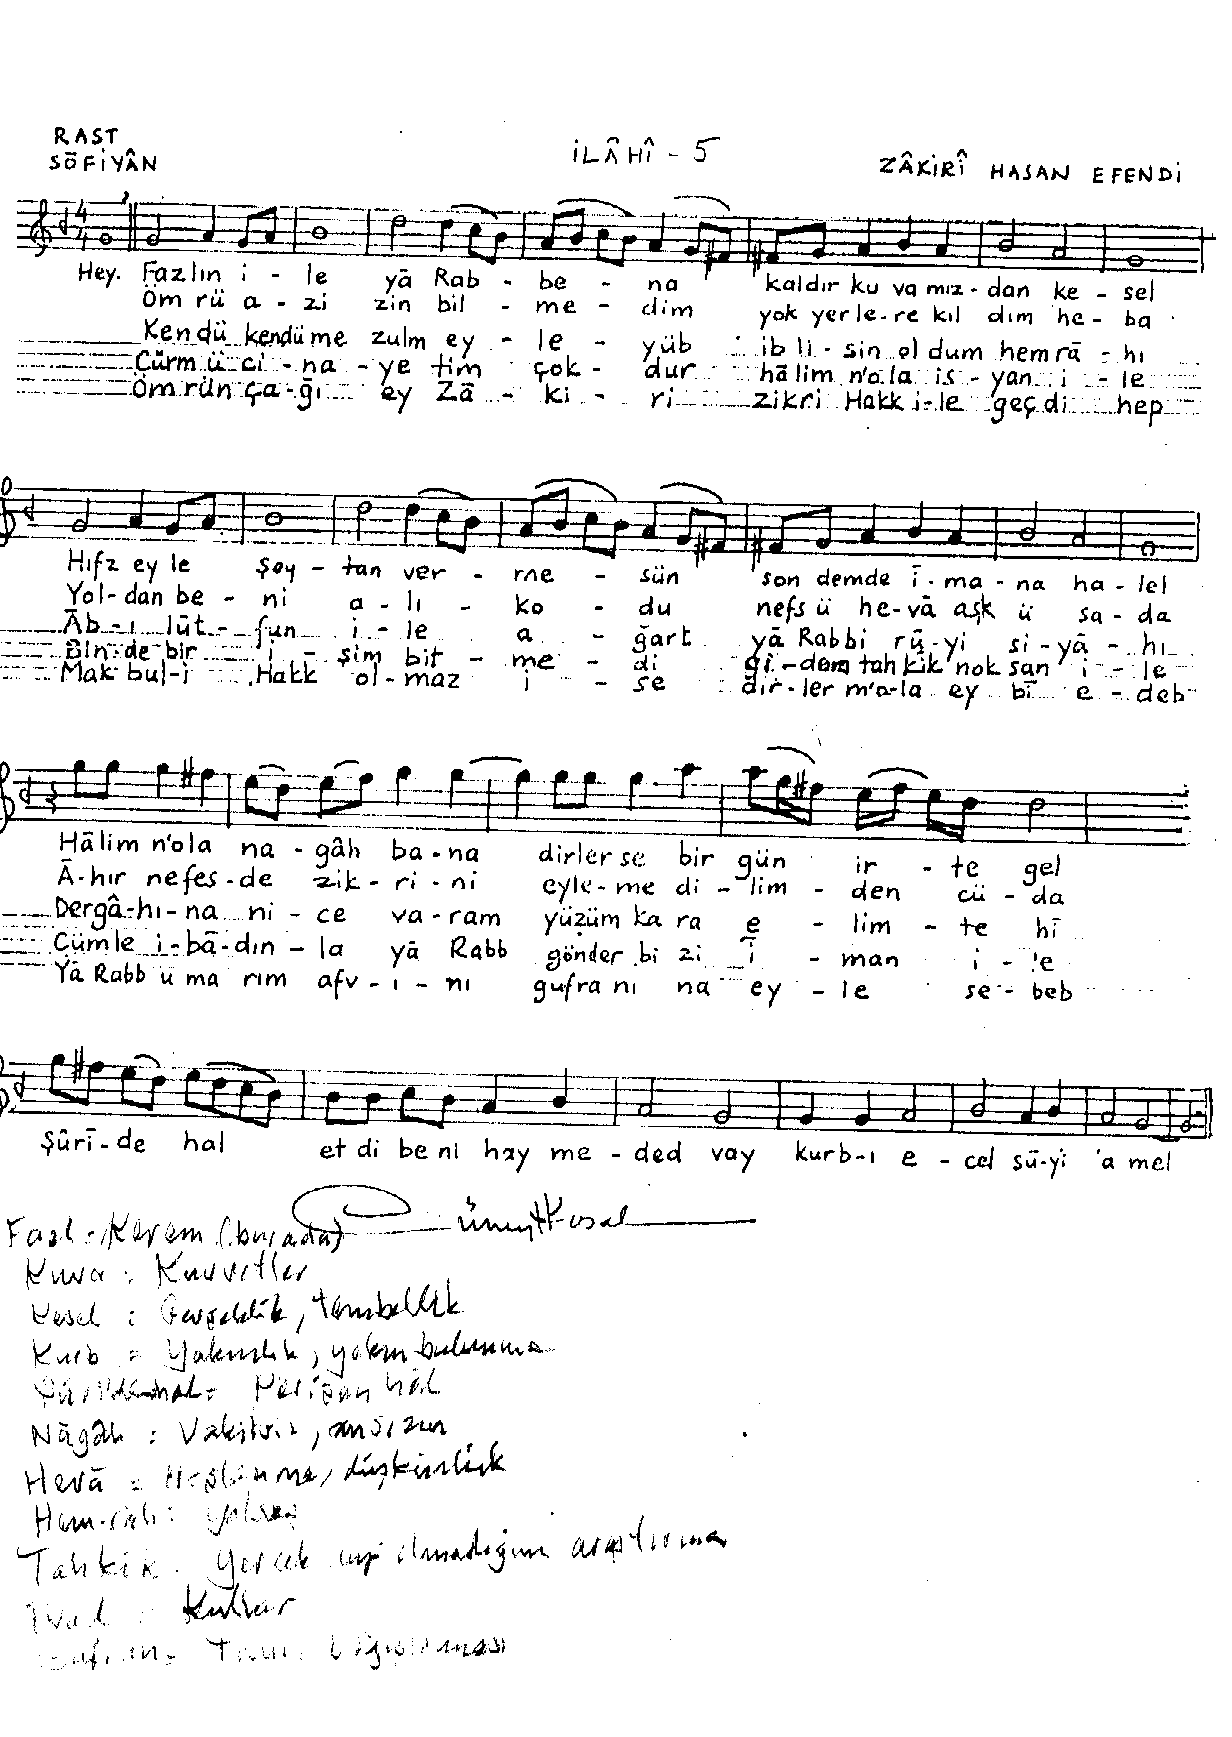 RAST
SÔFİYÂN
İLÂHÎ - 5
ZÂKİRÎ HASAN EFENDİ
Hey. Fazlın i - le yā Rab - be - na kaldır ku va mız - dan ke - sel
Öm rü a - zi zin bil - me - dim yok yer le - re kıl dım he - ba
Kendü kendü me zulm ey - le - yüb ib li - sin ol dum hem rā - hı
Cürm ü ci - na - ye tim çok - dur hā lim n'o la is - yan i - le
Öm rün ça - ğı ey Zā - ki - ri zikri Hakk i - le geç di hep
Hıfz ey le Şey - tan ver - me - sün son demde ī - ma - na ha - lel
Yol - dan be - ni a - lı - ko - du nefs ü he - vā aşk ü sa - da
Āb - ı lūt - fun i - le a - ğart yā Rabbi rū - yi si - yā - hı
Bin de bir i - şim bit - me - di gi - dem tah kik nok san i - le
Mak bul - i Hakk ol - maz i - se dir - ler m'o - la ey bī e - deb
Hālim n'ola na - gâh ba - na dirler se bir gün ir - te gel
Ā - hır nefes - de zik - ri - ni eyle - me di - lim - den cü - da
Dergâ - hı - na ni - ce va - ram yüzüm ka ra e - lim - te hī
Cümle i - bā - dın - la yā Rabb gönder bi zi ī - man i - le
Yā Rabb u ma rım afv - ı - nı gufra nı na ey - le se - beb
Şûrī - de hal et di be ni hay me - ded vay kurb - ı e - cel sū - yi 'a mel
Fazl - Kerem (burada)
Kuva : Kuvvetler
Kesel : Gevşeklik, tembellik
Kurb = Yakınlık, yakın bulunma
Perişan hâl
Nāgâh : Vakitsiz, ansızın
Hevā = düşkünlük
Hem-râh :
Tahkik. gerçek olmadığını araştırma
: Kullar